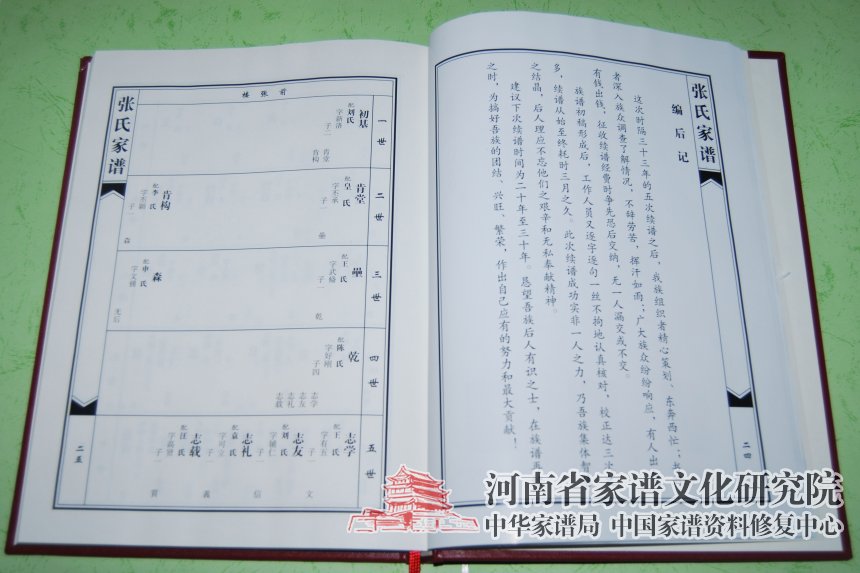 张氏家谱
编后记
这次时隔三十三年的五次续谱之后，我族组织者精心策划、东奔西忙；
者深入族众调查了解情况，不辞劳苦，挥汗如雨；广大族众纷纷响应，有人出
有钱出钱，征收续谱经费时争先恐后交纳，无一人漏交或不交。
族谱初稿形成后，工作人员又逐字逐句一丝不拘地认真核对，校正达三次
多，续谱从始至终耗时三月之久。此次续谱成功实非一人之力，乃吾族集体智
之结晶，后人理应不忘他们之艰辛和无私奉献精神。
建议下次续谱时间为二十年至三十年。恳望吾族后人有识之士，在族谱再
之时，为搞好吾族的团结、兴旺、繁荣，作出自己应有的努力和最大贡献！
二四
前张楼
一世
初基
配刘氏
子二
肯堂
肯构
二世
肯堂
配皇氏
子一
肯构
配李氏
子一
森
三世
配王氏
子一
乾
森
配申氏
无后
四世
乾
配陈氏
字好刚
子四
志学
志友
志礼
志载
五世
志学
配王氏
字有五
子一
文
志友
配刘氏
字辅仁
子一
信
志礼
配袁氏
字可立
子一
義
志载
配汪氏
子一
張氏家谱
二五
河南省家谱文化研究院
中华家谱局 中国家谱资料修复中心